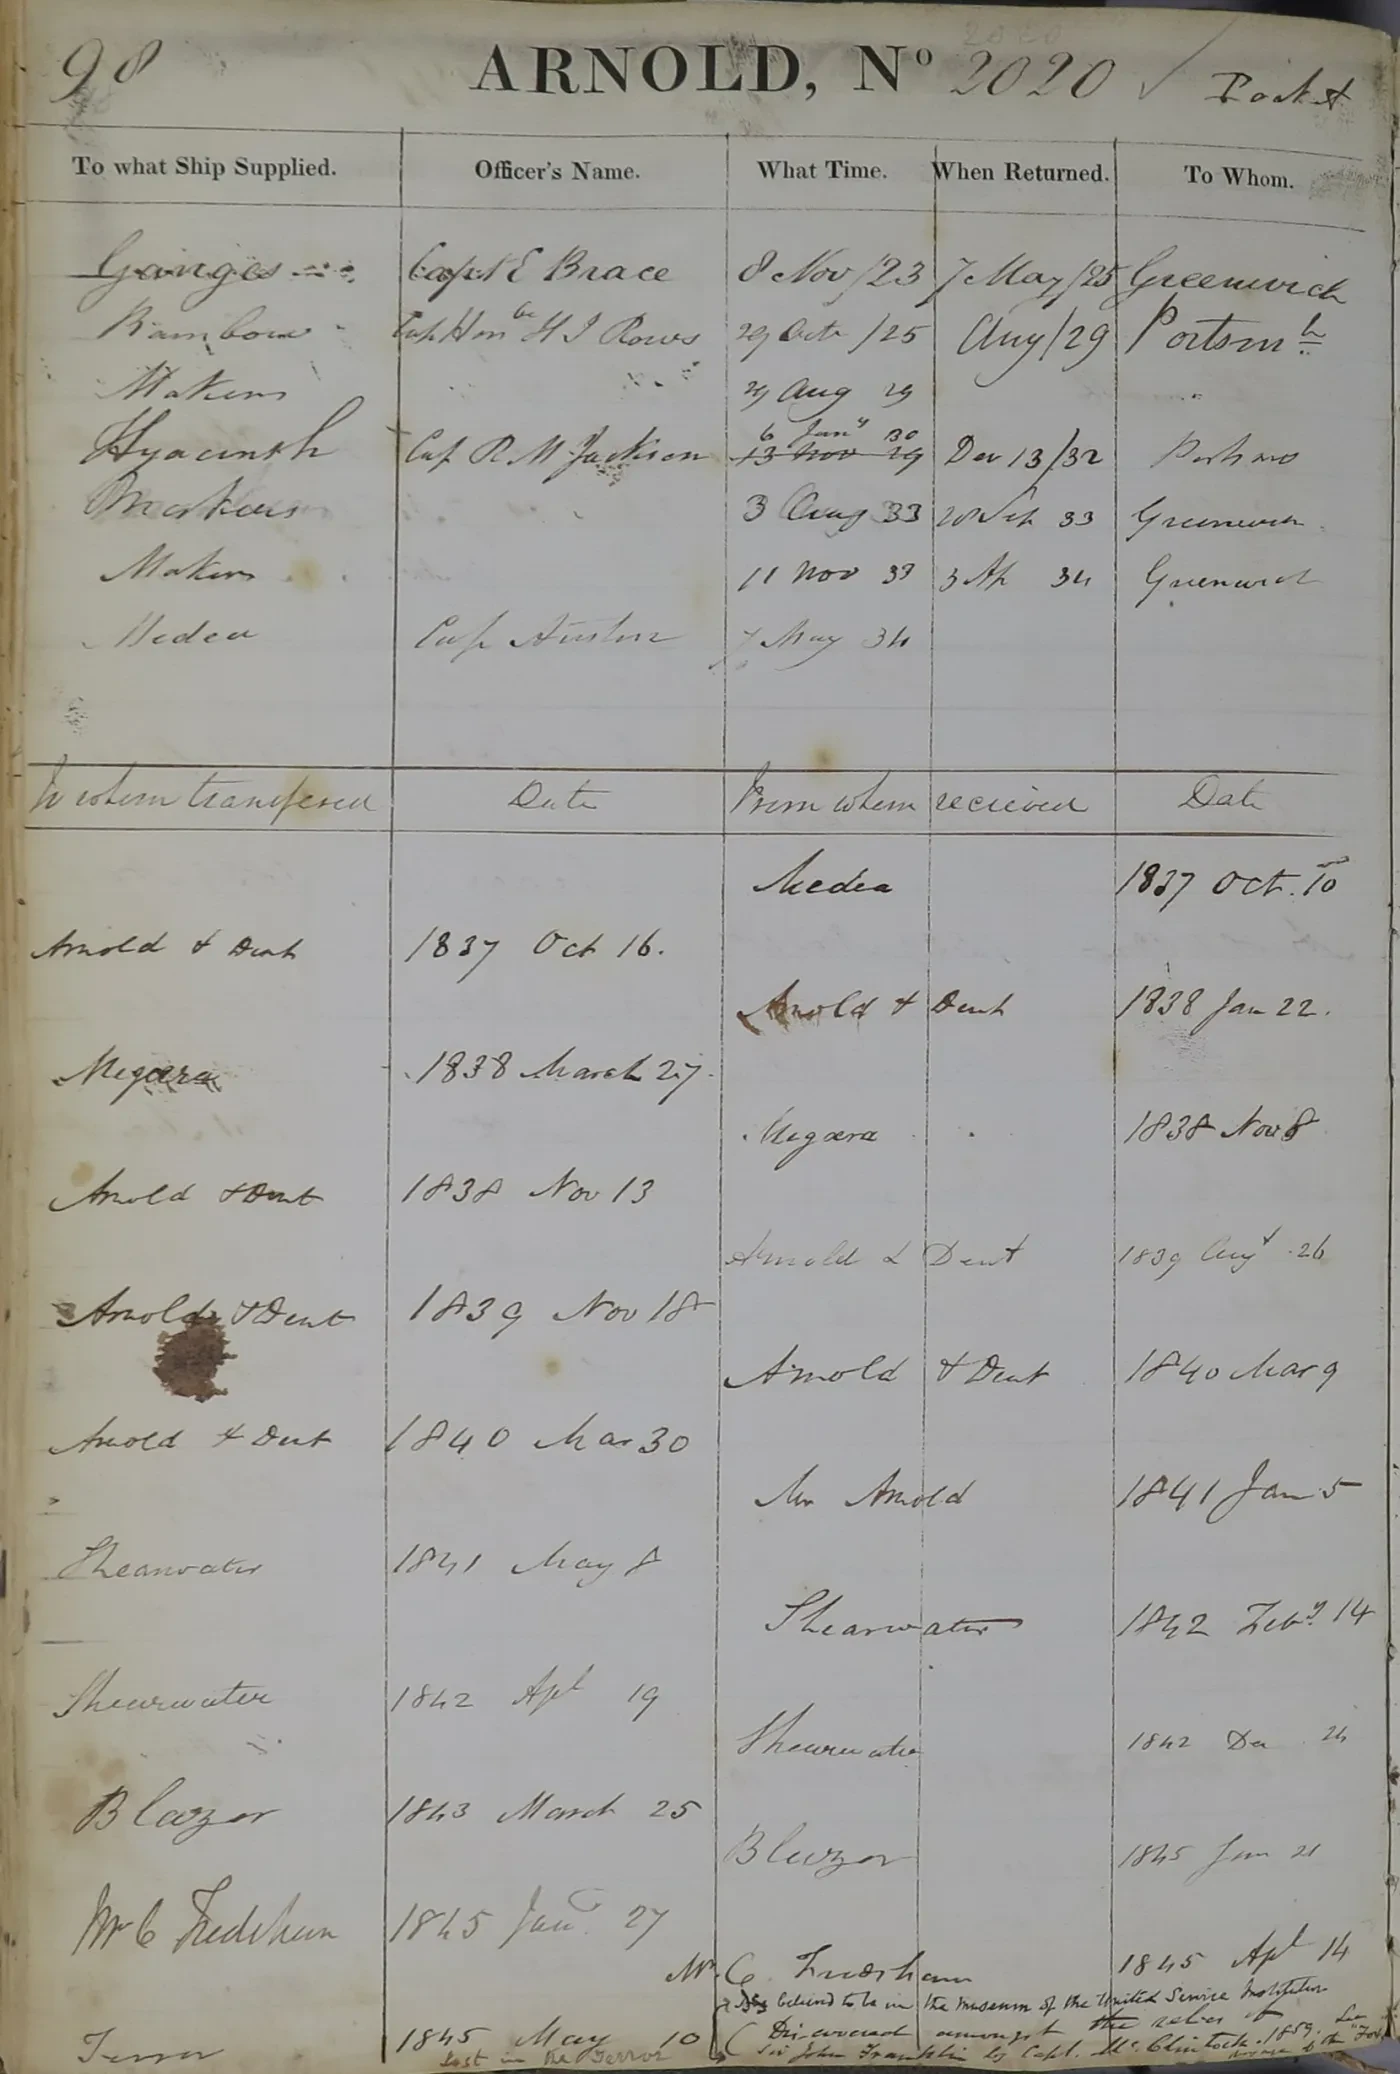 98 ARNOLD, Nº 2020 Pocket
To what Ship Supplied. Officer's Name. What Time. When Returned. To Whom.
Ganges Capt E Brace 8 Nov /23 7 May /25 Greenwich
Rainbow Cap Honbe H J Rous 29 Octr /25 Aug /29 Portsmh
Makers 29 Aug 29
6 Jany 30
Hyacinth Cap R M Jackson 13 Nov 29 Dec 13/32 Portsmo
Makers 3 Aug 33 28 Sep 33 Greenwich
Makers 11 Nov 33 3 Ap 34 Greenwich
Medea Cap Austin 7 May 34
To whom transfered Date From whom recieved Date
Medea 1837 Oct. 10
Arnold & Dent 1837 Oct 16.
Arnold & Dent 1838 Jan 22.
Megæra 1838 March 27.
Megæra 1838 Nov 8
Arnold & Dent 1838 Nov 13
Arnold & Dent 1839 Augt 26
Arnold & Dent 1839 Nov 18
Arnold & Dent 1840 Mar 9
Arnold & Dent 1840 Mar 30
Mr Arnold 1841 Jan 5
Shearwater 1841 May 8
Shearwater 1842 Feby 14
Shearwater 1842 Apl 19
Shearwater 1842 De 24
Blazer 1843 March 25
Blazer 1845 Jan 21
Mr C Frodsham 1845 Jan 27
Mr C Frodsham 1845 Apl 14
believed to be in the museum of the United Service Institution
Terror 1845 May 10 Discovered amongst the relics of
Lost in the Terror Sir John Franklin by Capt. McClintock. 1859. See voyage of the "Fox"